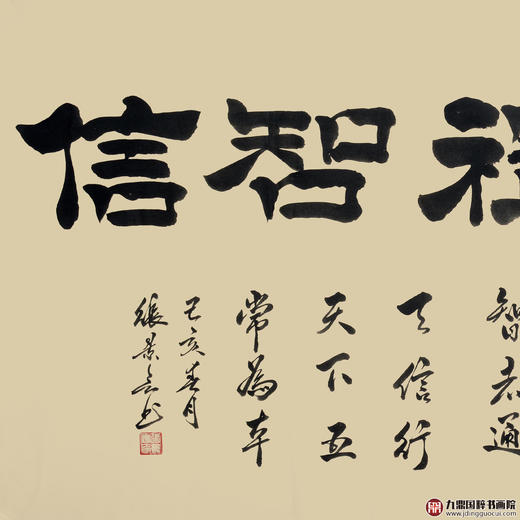 智信
智者通
天信行
天下五
常為本
己亥春月
張景書
九鼎国粹书画院
www.jdingguocui.com